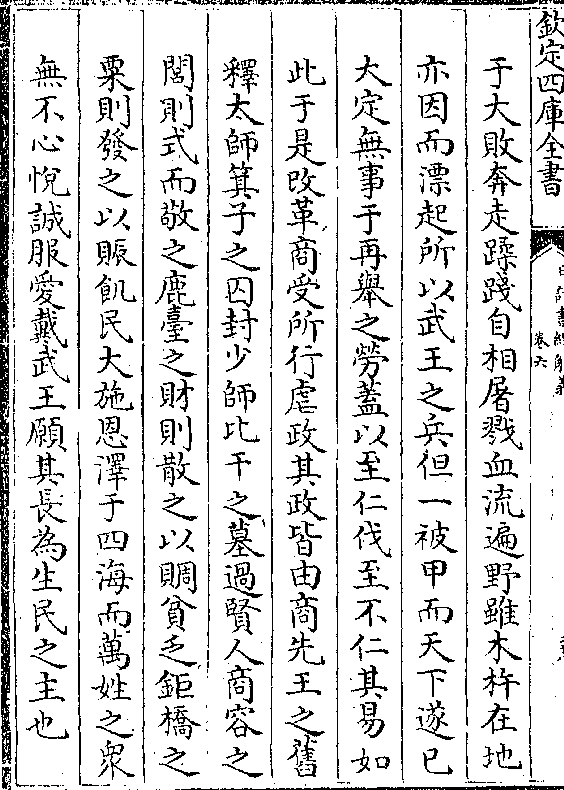 欽定四庫全書
卷六
于大敗奔走蹂踐自相屠戮血流遍野雖木杵在地
亦因而漂起所以武王之兵但一被甲而天下遂已
大定無事于再舉之勞蓋以至仁伐至不仁其易如
此于是改革商受所行虐政其政皆由商先王之舊
釋太師箕子之囚封少師比干之墓過賢人商容之
閭則式而敬之鹿臺之財則散之以賙貧乏鉅橋之
粟則發之以賑飢民大施恩澤于四海而萬姓之衆
無不心悅誠服愛戴武王願其長為生民之主也